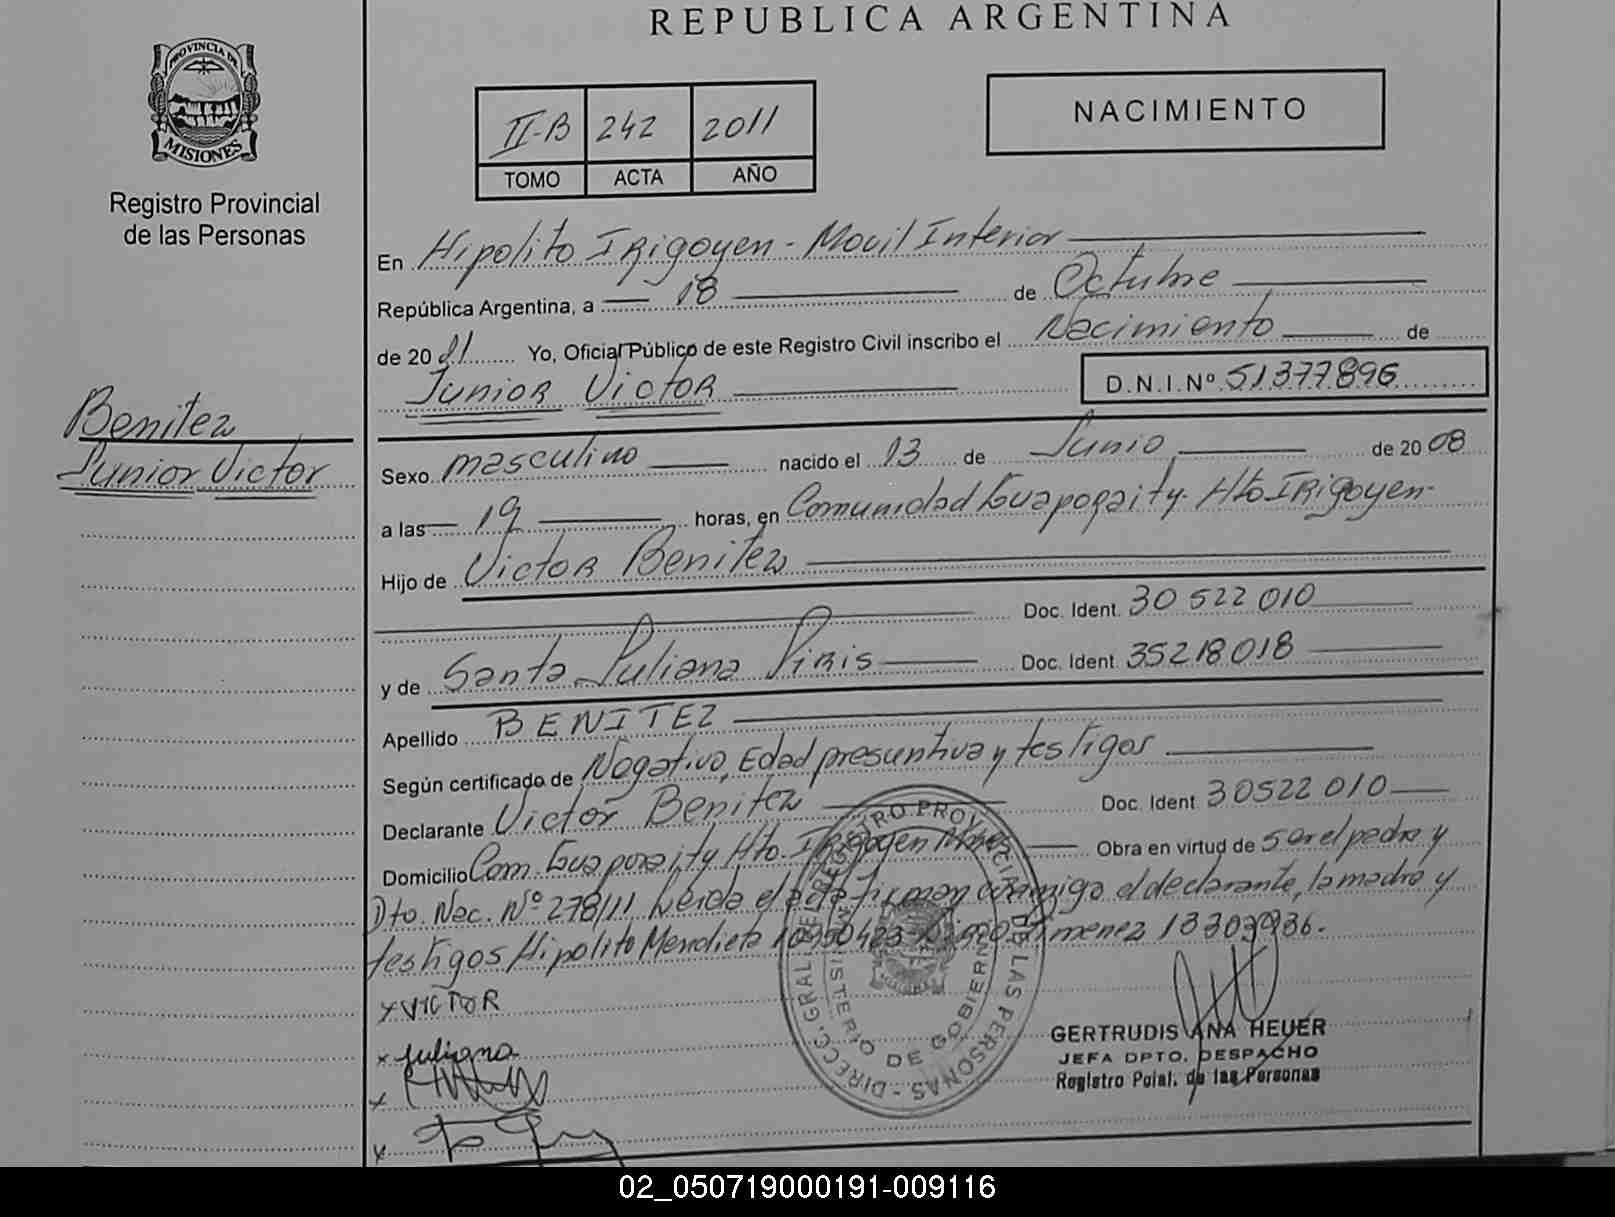 REPUBLICA ARGENTINA
PROVINCIA DE
MISIONES
Registro Provincial
de las Personas
II-B 242 2011
TOMO ACTA AÑO
NACIMIENTO
En Hipolito IRigoyen - Movil Interior
República Argentina, a 18 de Octubre
de 20 11 Yo, Oficial Público de este Registro Civil inscribo el Nacimiento de
Junior Victor D.N.I.Nº 51377896
Benitez
Junior Victor
Sexo masculino nacido el 13 de Junio de 20 08
a las 19 horas, en Comunidad Guaporaity. Hto IRigoyen-
Hijo de Victor Benitez
Doc. Ident. 30 522 010
y de Santa Juliana Piris Doc. Ident. 35218018
Apellido BENITEZ
Según certificado de Negativo, Edad presuntiva y testigos
Declarante Victor Benitez Doc. Ident 30522 010
Domicilio Com. Guaporaity Hto. IRigoyen Mnes Obra en virtud de ser el padre y
Dto. Nac. Nº 278/11 Leida el acta firman conmigo el declarante, la madre y
testigos Hipolito Mendieta Jimenez 13303936.
x VICTOR
x Juliana
x
x
DIRECC. GRAL. DE REGISTRO PROVINCIAL DE LAS PERSONAS -
MINISTERIO DE GOBIERNO
GERTRUDIS ANA HEUER
JEFA DPTO. DESPACHO
Registro Pcial. de las Personas
02_050719000191-009116